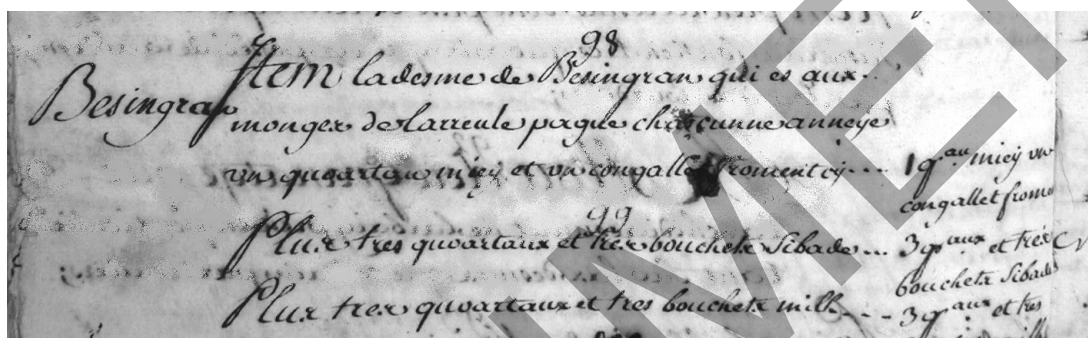 98
Besingran
Item ladesme de Besingran qui es aux
monges de larreule pague chascunne anneye
un quoartau miey et un congallet froment cy... 1 q.au miey un
congallet frome
99
Plus tres quoartaux et tres bouchets sibade... 3 q.aux et tres
bouchets sibade
Plus tres quoartaux et tres bouchets milh... 3 q.aux et tres